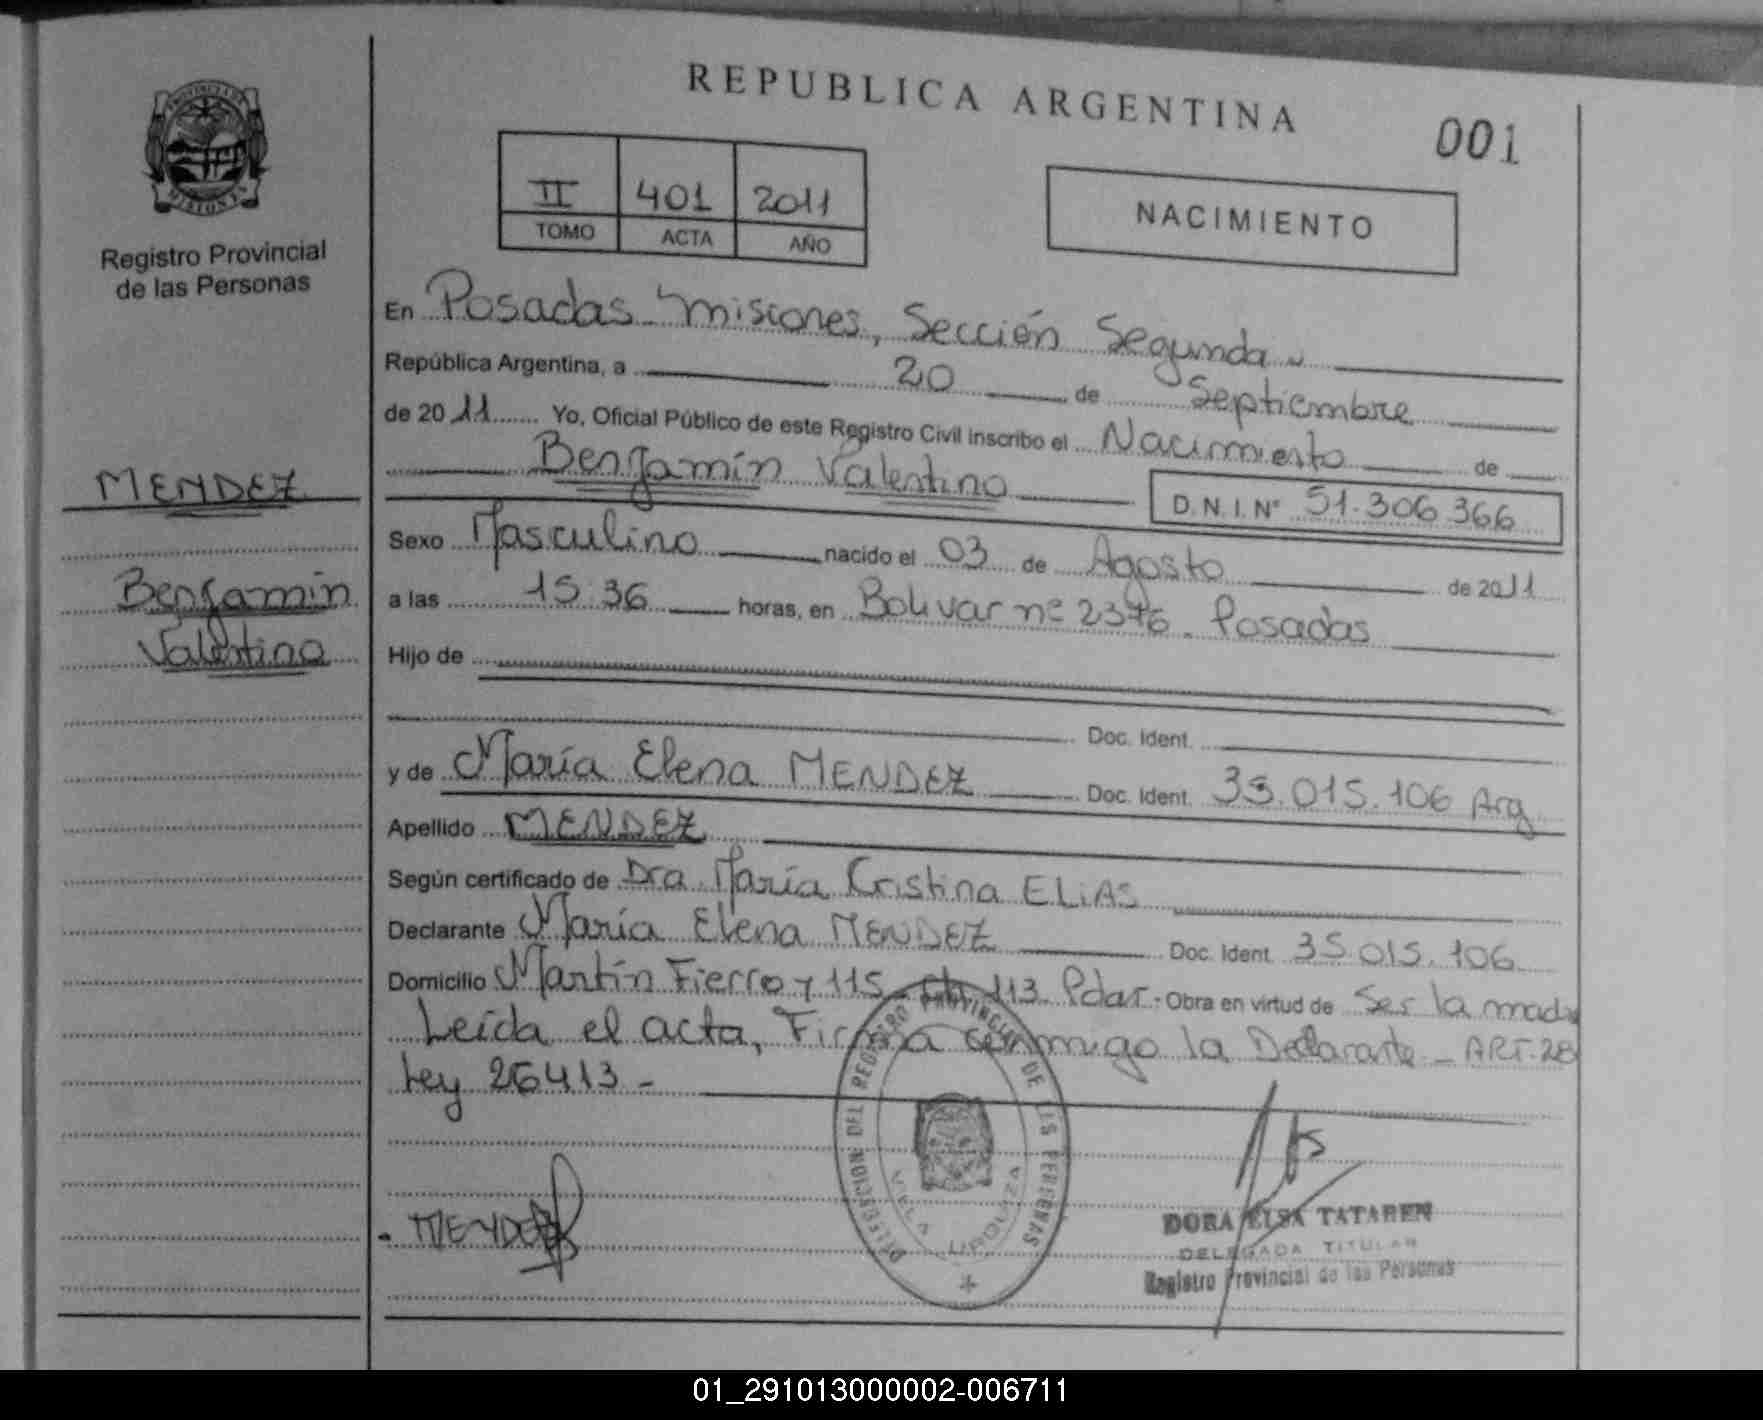 REPUBLICA ARGENTINA
001
PROVINCIA DE MISIONES
Registro Provincial
de las Personas
II 401 2011
TOMO ACTA AÑO
NACIMIENTO
En Posadas Misiones, Sección Segunda
República Argentina, a 20 de Septiembre
de 2011 Yo, Oficial Público de este Registro Civil inscribo el Nacimiento de
Benjamín Valentino D.N.I.Nº 51.306.366
MENDEZ
Benjamín
Valentino
Sexo Masculino nacido el 03 de Agosto de 2011
a las 15:36 horas, en Bolivar nº 2376. Posadas
Hijo de
Doc. Ident.
y de María Elena MENDEZ Doc. Ident. 35.015.106 Arg
Apellido MENDEZ
Según certificado de Dra. María Cristina ELIAS
Declarante María Elena MENDEZ Doc. Ident. 35.015.106
Domicilio Martín Fierro y 115 113 Pdas. Obra en virtud de Ser la madre
Leída el acta, Firma conmigo la Declarante - ART. 28
Ley 26413 -
MENDEZ
DELEGACION DEL REGISTRO PROVINCIAL DE LAS PERSONAS
VILLA URQUIZA
DORA ELSA TATAREN
DELEGADA TITULAR
Registro Provincial de las Personas
01_291013000002-006711